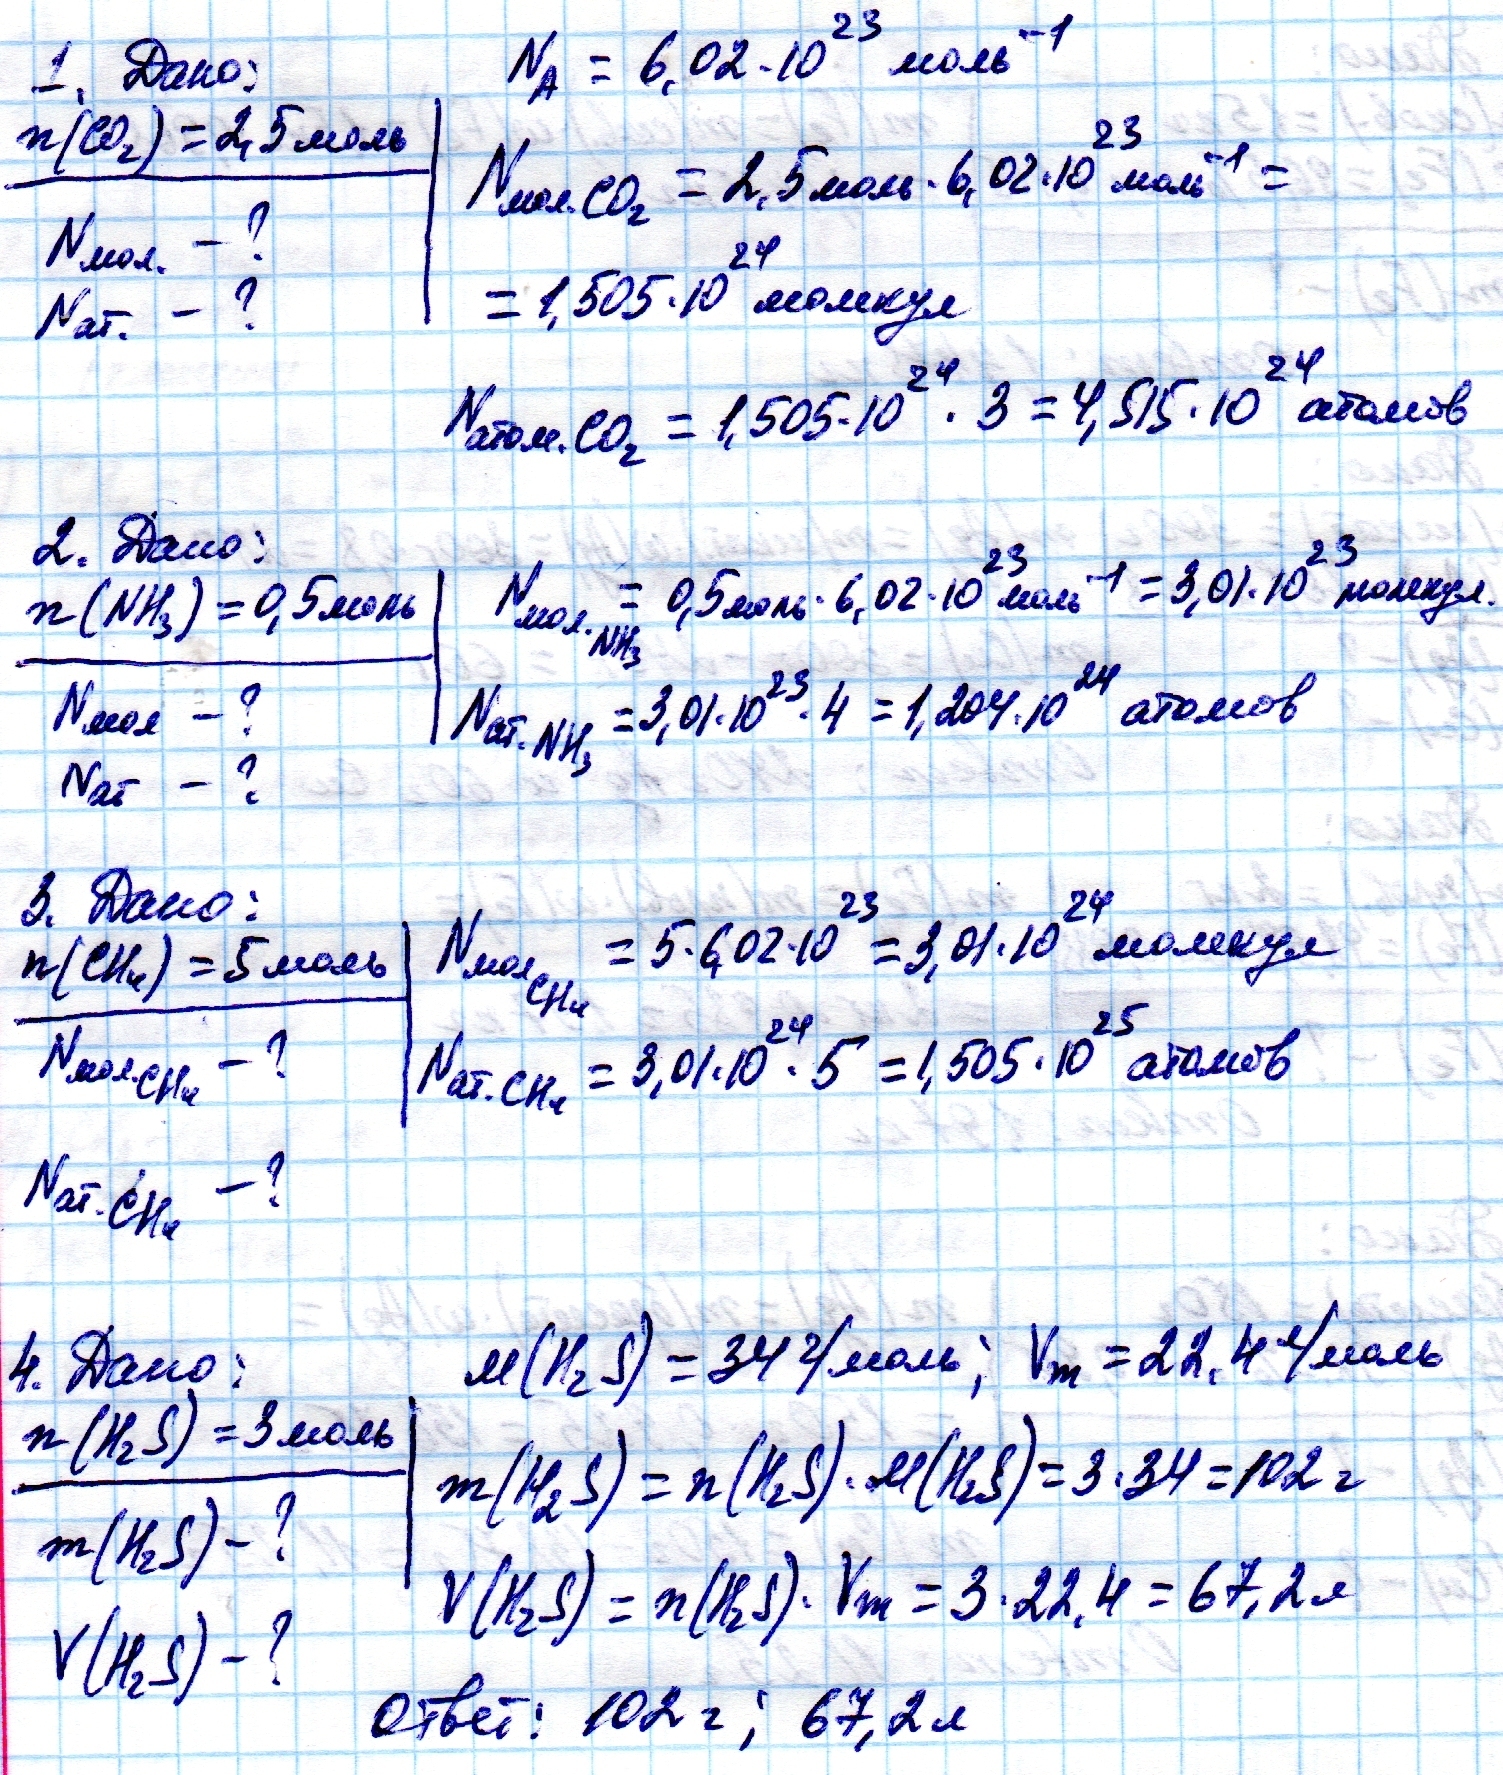 1. Дано:
n(CO₂) = 2,5 моль
Nмол. – ?
Nат. – ?
N_A = 6,02·10²³ моль⁻¹
Nмол.CO₂ = 2,5 моль · 6,02·10²³ моль⁻¹ =
= 1,505·10²⁴ молекул
Nатом.CO₂ = 1,505·10²⁴ · 3 = 4,515·10²⁴ атомов
2. Дано:
n(NH₃) = 0,5 моль
Nмол – ?
Nат – ?
Nмол.NH₃ = 0,5 моль · 6,02·10²³ моль⁻¹ = 3,01·10²³ молекул.
Nат.NH₃ = 3,01·10²³ · 4 = 1,204·10²⁴ атомов
3. Дано:
n(CH₄) = 5 моль
Nмол.CH₄ – ?
Nат.CH₄ – ?
Nмол CH₄ = 5·6,02·10²³ = 3,01·10²⁴ молекул
Nат.CH₄ = 3,01·10²⁴ · 5 = 1,505·10²⁵ атомов
4. Дано:
n(H₂S) = 3 моль
m(H₂S) – ?
V(H₂S) – ?
M(H₂S) = 34 г/моль; Vm = 22,4 л/моль
m(H₂S) = n(H₂S)·M(H₂S) = 3·34 = 102 г
V(H₂S) = n(H₂S)·Vm = 3·22,4 = 67,2 л
Ответ: 102 г; 67,2 л